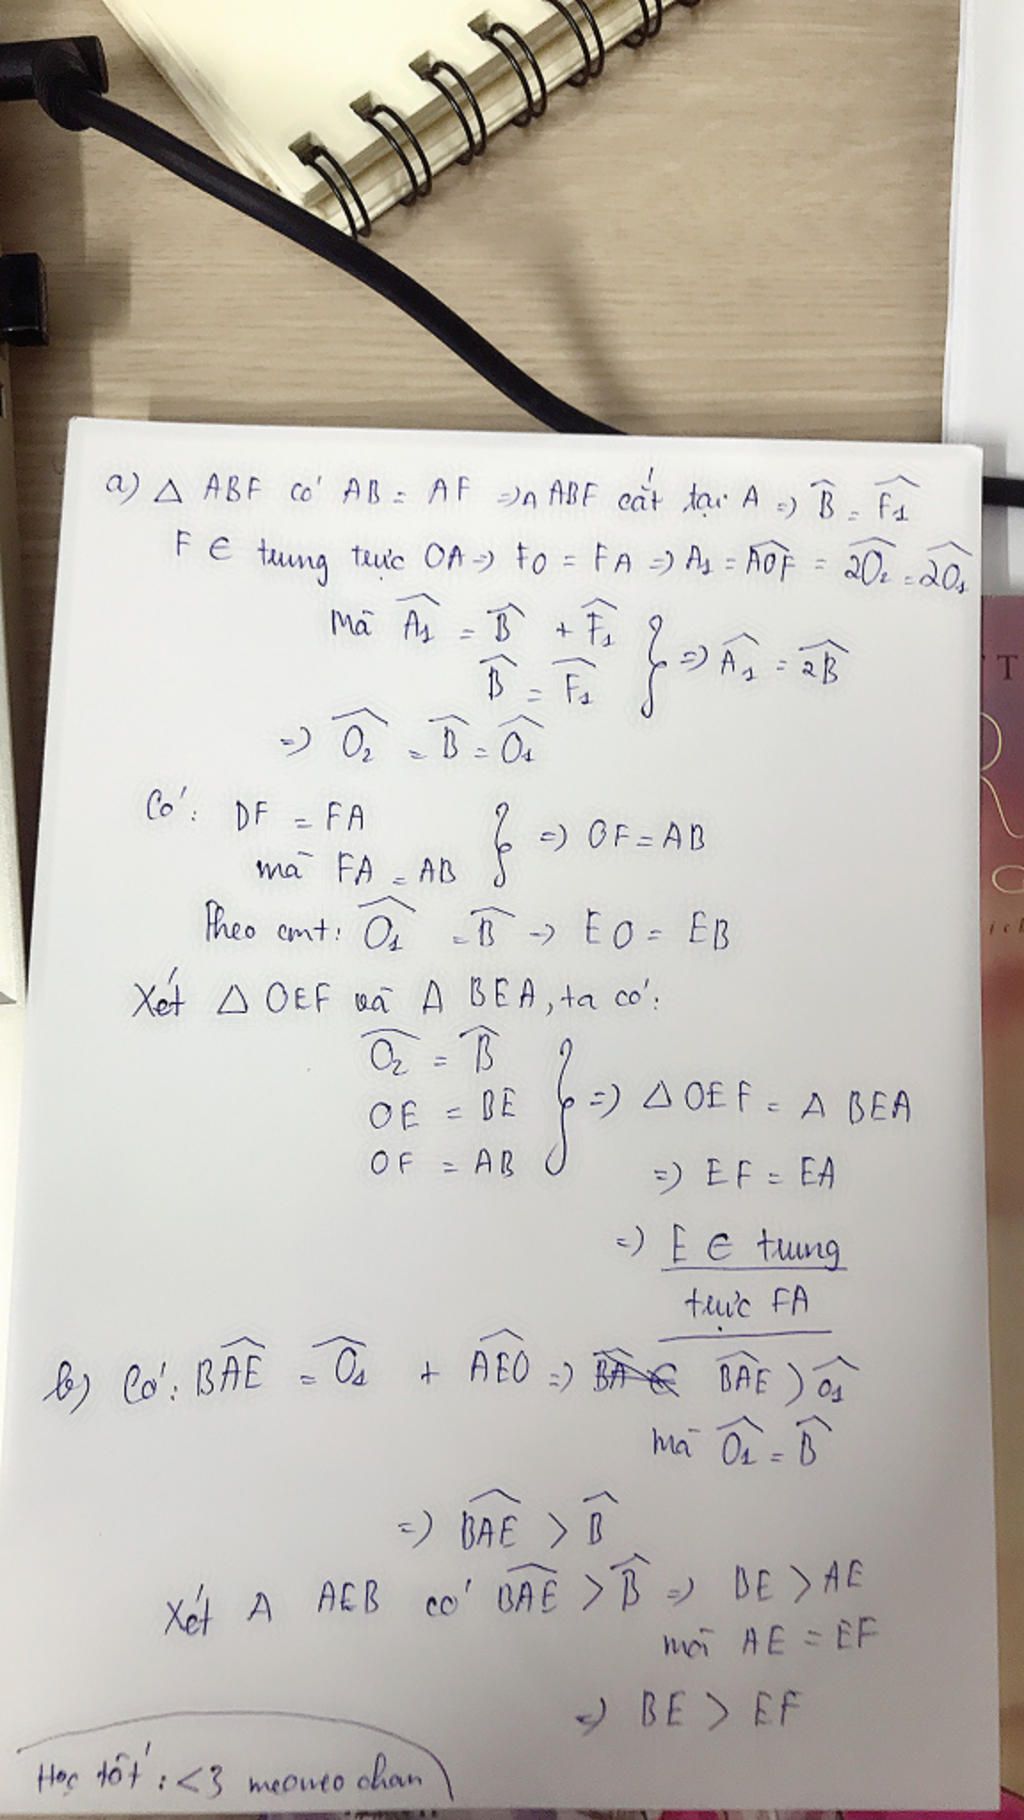 a) Δ ABF có AB = AF => Δ ABF cắt tại A => B̂ = F̂₁
F ∈ trung trực OA => FO = FA => A₁ = AÔF = 2Ô₂ = 2Ô₁
Mà Â₁ = B̂ + F̂₁
B̂ = F̂₁ } => Â₁ = 2B̂
=> Ô₂ = B̂ = Ô₁
Có: DF = FA
mà FA = AB } => OF = AB
Theo cmt: Ô₁ = B̂ -> EO = EB
Xét Δ OEF và Δ BEA, ta có:
Ô₂ = B̂
OE = BE } => Δ OEF = Δ BEA
OF = AB
=> EF = EA
=> E ∈ trung
trực FA
b) Có: BÂE = Ô₁ + AÊO => BÂE > Ô₁
mà Ô₁ = B̂
=> BÂE > B̂
Xét Δ AEB có BÂE > B̂ => BE > AE
mà AE = EF
=> BE > EF
Học tốt : <3 meomeo chan